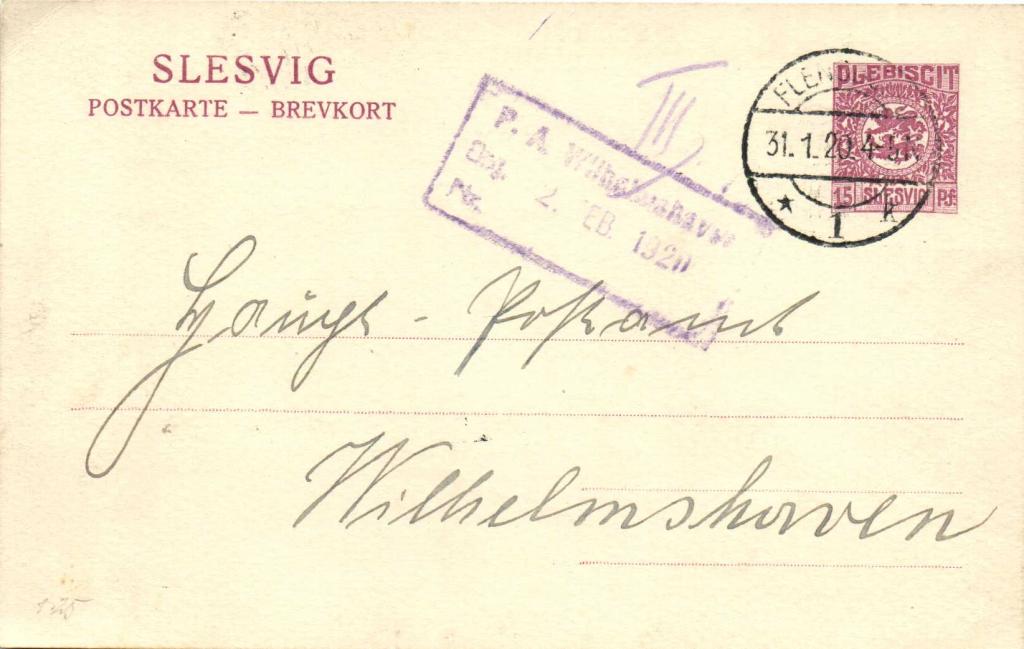 SLESVIG
POSTKARTE — BREVKORT
PLEBISCIT
15 SLESVIG Pf.
FLENS
31. 1. 20. 4-5 N
* 1 k
III
P. A. Wilhelmshaven
2. FEB. 1920
Nr.
Haupt - Postamt
Wilhelmshaven